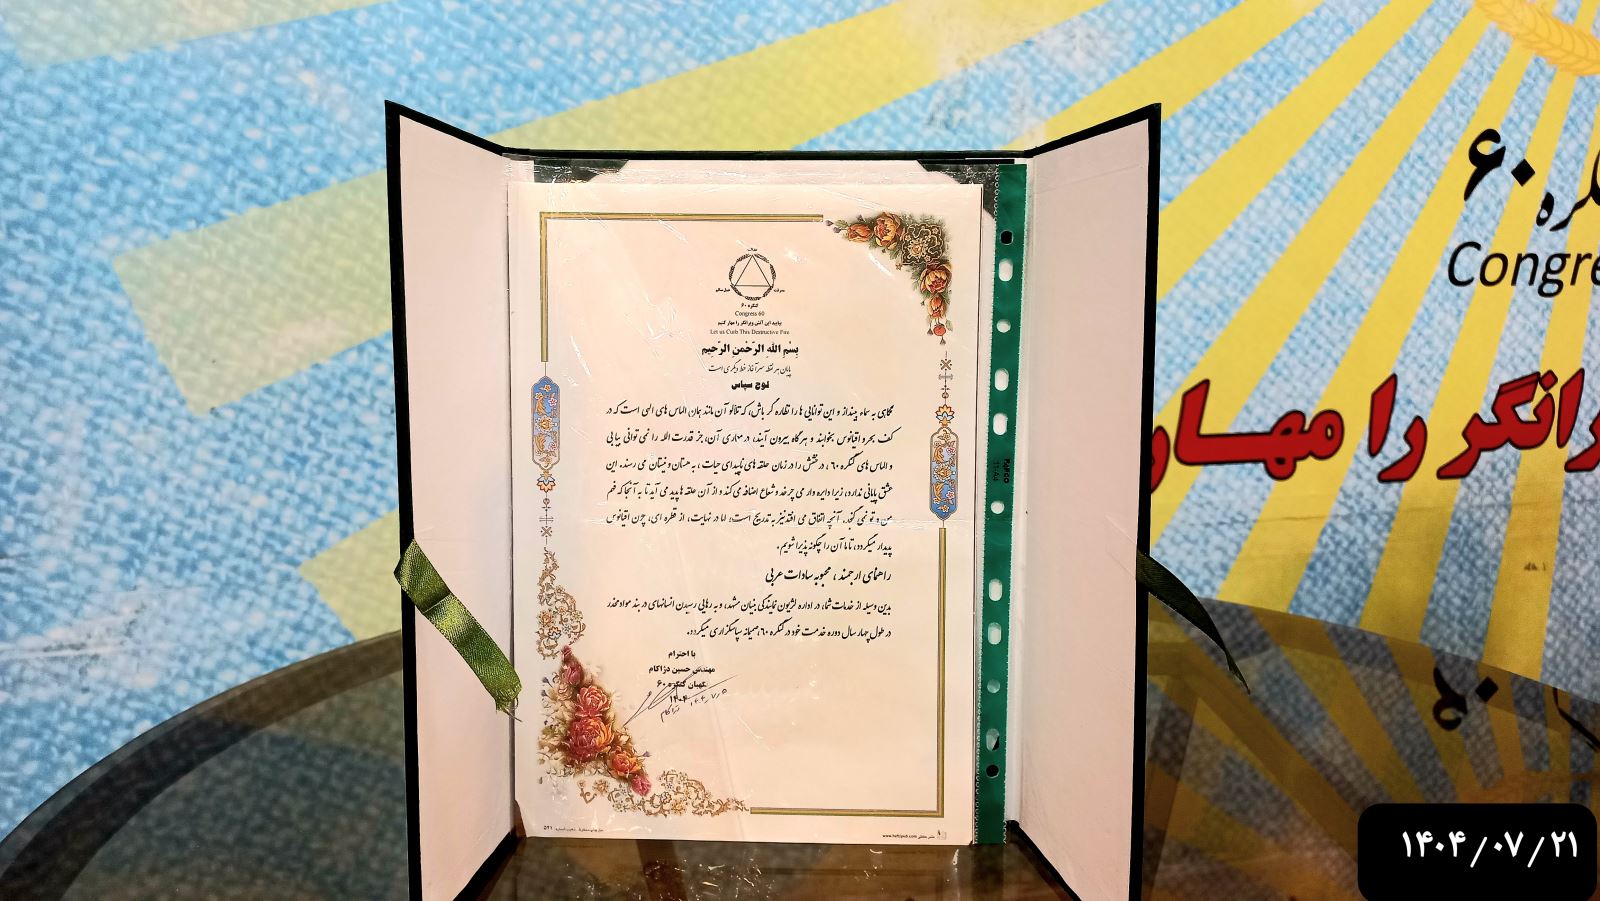 عدالت
معرفت
عمل سالم
کنگره ۶۰
Congress 60
بیایید این آتش ویرانگر را مهار کنیم
Let us Curb This Destructive Fire
بِسْمِ اللّهِ الرَّحْمنِ الرَّحیمِ
پایان هر نقطه سرآغاز خط دیگری است
لوح سپاس
نگاهی به سماء بینداز و این توانایی ها را نظاره گر باش، که تلألو آن مانند همان الماس های الهی است که در
کف بحر و اقیانوس بخوابند و هرگاه بیرون آیند، در معماری آن، جز قدرت الله را نمی توانی بیابی
و الماس های کنگره ۶۰، درخشش را در زمان حلقه های ناپیدای حیات، به هستان و نیستان می رسند. این
عشق پایانی ندارد، زیرا دایره وار می چرخد و شعاع اضافه می کند و از آن حلقه ها پدید می آید تا به آنجا که فهم
من و تو نمی گنجد. آنچه اتفاق می افتد نیز به تدریج است؛ اما در نهایت، از قطره ای، چون اقیانوس
پدیدار میگردد، تا ما آن را چگونه پذیرا شویم.
راهنمای ارجمند ، محبوبه سادات عربی
بدین وسیله از خدمات شما، در اداره لژیون نمایندگی بنیان مشهد، و به رهایی رسیدن انسانهای در بند مواد مخدر
در طول چهار سال دوره خدمت خود در کنگره ۶۰، صمیمانه سپاسگزاری میگردد.
با احترام
مهندس حسین دژاکام
نگهبان کنگره ۶۰
۱۴۰۴
۱۴۰۴/۷/۵
دژاکام
www.haftpub.com
۵۴۱
PAPCO
۶۰
Congre
رانگر را مهار
۱۴۰۴/۰۷/۲۱